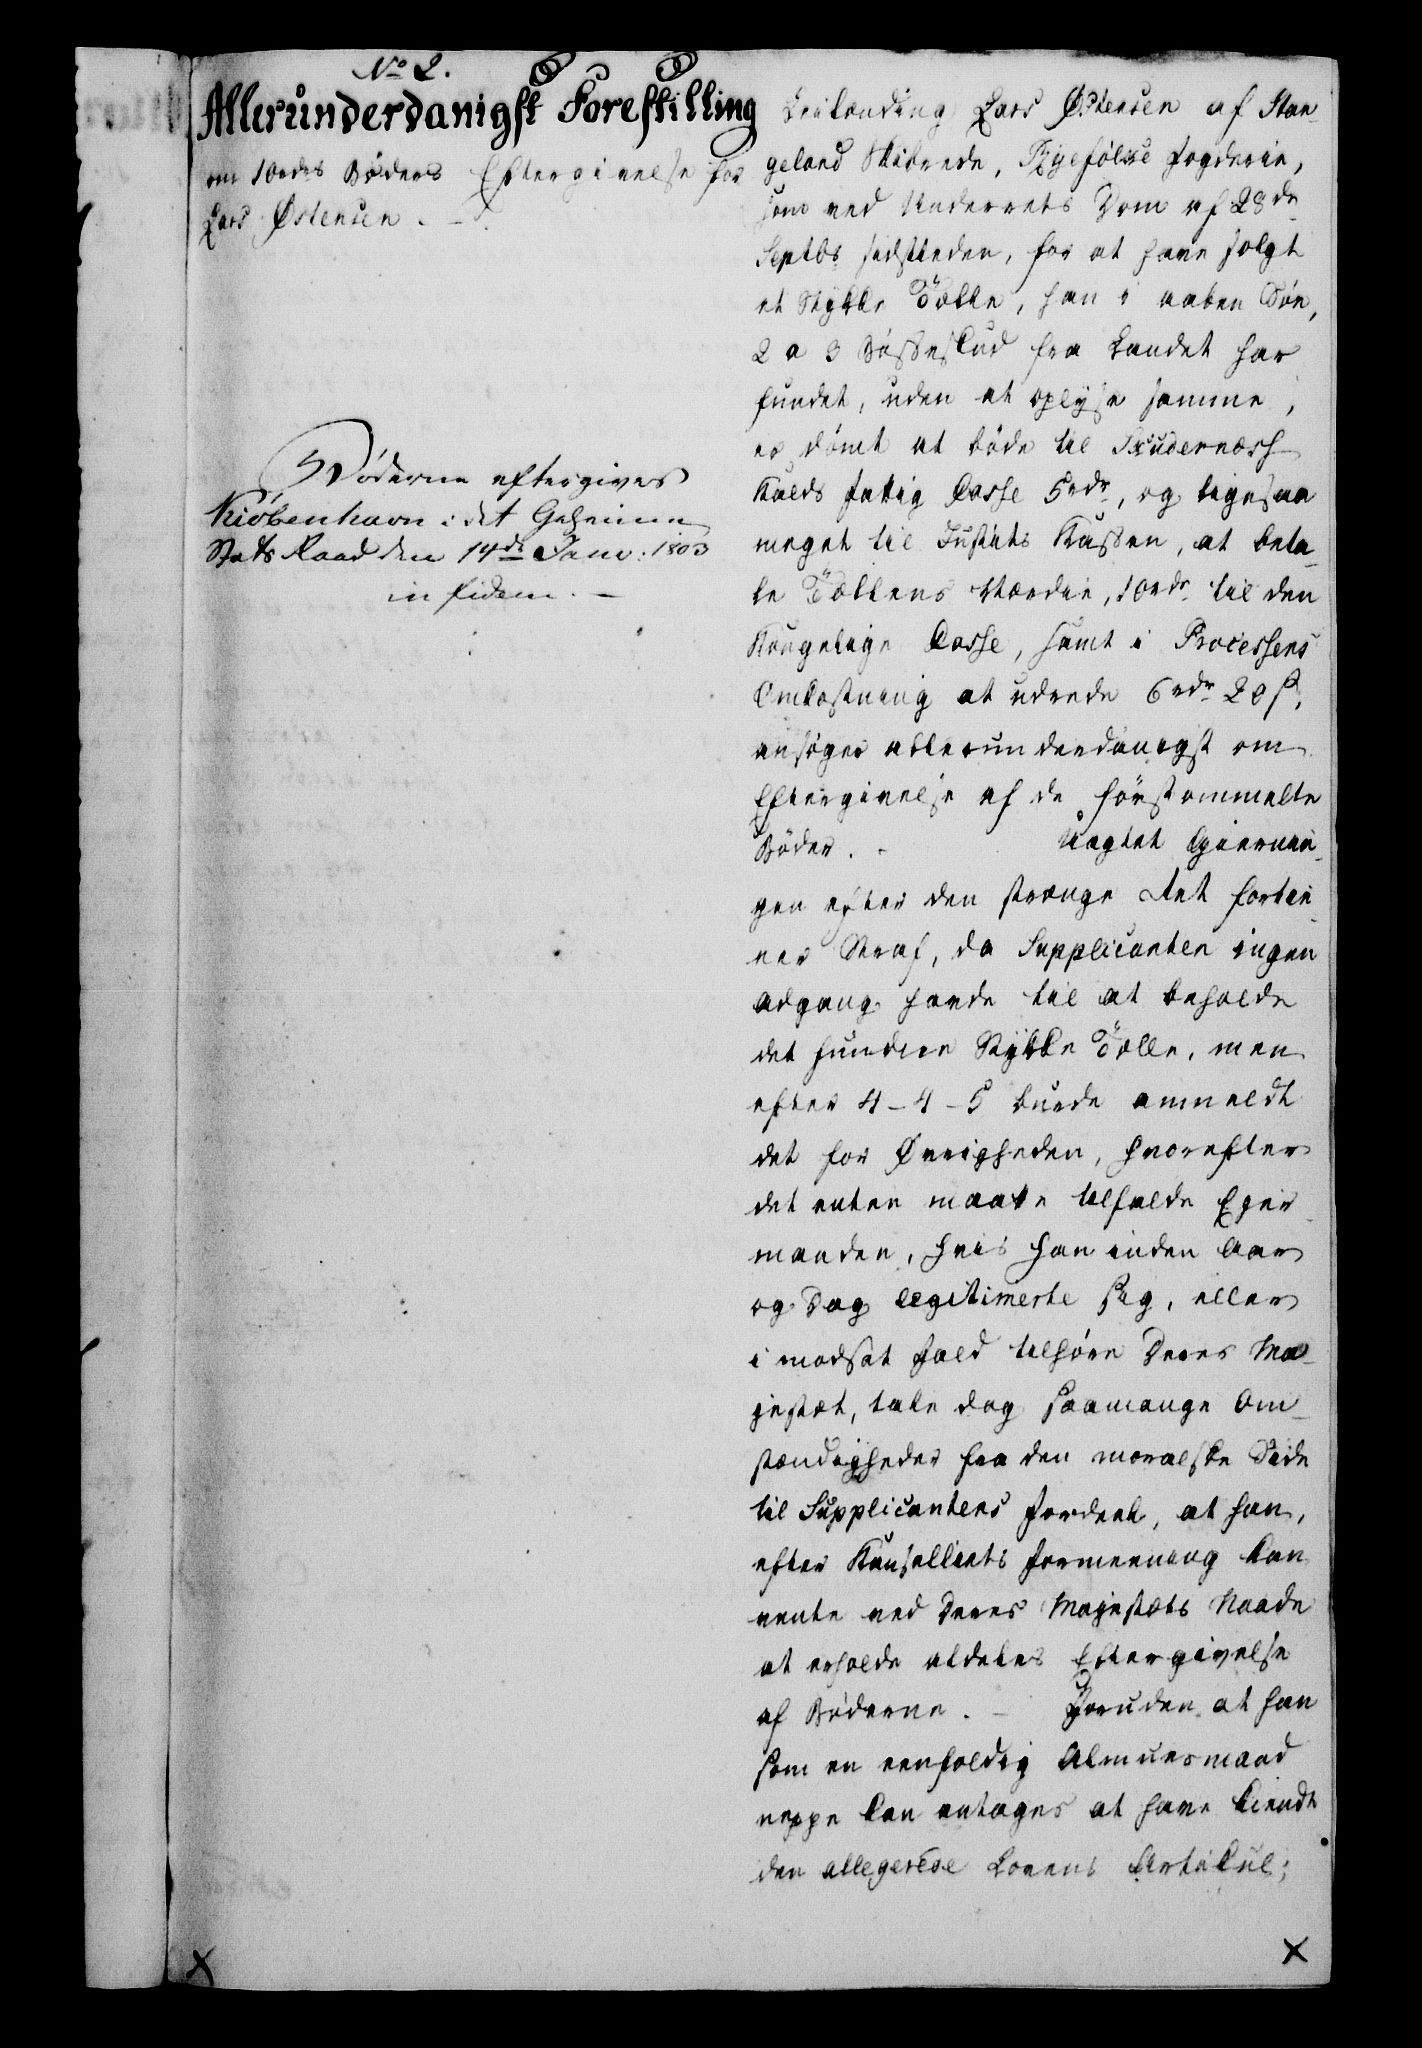 No 2.
Allerunderdanigst Forestilling
om 10rdrs Bøders Eftergivelse for
Lars Østensen.
Bøderne eftergives
Kiøbenhavn i det Geheime
Stats Raad den 14de Janv: 1803
in fidem.
Lars Østensen af Stan-
geland Skibrede, Ryefølke Fogderie,
som ved Underrets Dom af 28de
Septbr sidstleden, for at have solgt
et Stÿkke Tælle, han i aaben Søe,
2 a 3 Bøsseskud fra Landet har
fundet, uden at oplyse samme,
er dømt at bøde til Skudernæss
Kalds fattig Casse 5rdr, og ligesaa
meget til Justits Kassen, at beta-
le Tællens Værdie, 10rdr til den
Kongelige Casse, samt i Processens
Omkostning at udrede 6rdr 20 s,
ansøger allerunderdanigst om
Eftergivelse af de førstommelte
Bøder. - Uagtet Gierninn-
gen efter den strænge Ret fortie-
ner Straf, da Supplicanten ingen
adgang havde til at beholde
det fundne Stÿkke Tælle, men
efter 4-4-5 burde anmeldt
det for Øvrigheden, hvorefter
det enten maatte tilfalde Eyer-
manden, hvis han inden Aar
og Dag legitimerte sig, eller
i modsat Fald tilhøre Deres Ma-
jestæt, tale dog saamange Om-
stændigheder fra den moralske Side
til Supplicantens Fordeel, at han,
efter Kanselliets Formeening kan
vente ved Deres Majestæts Naade
at erholde aldeles Eftergivelse
af Bøderne. - Foruden at han
som en eenfoldig Almuesmand
neppe kan antages at have kiendt
den allegerede Lovens Artikul;